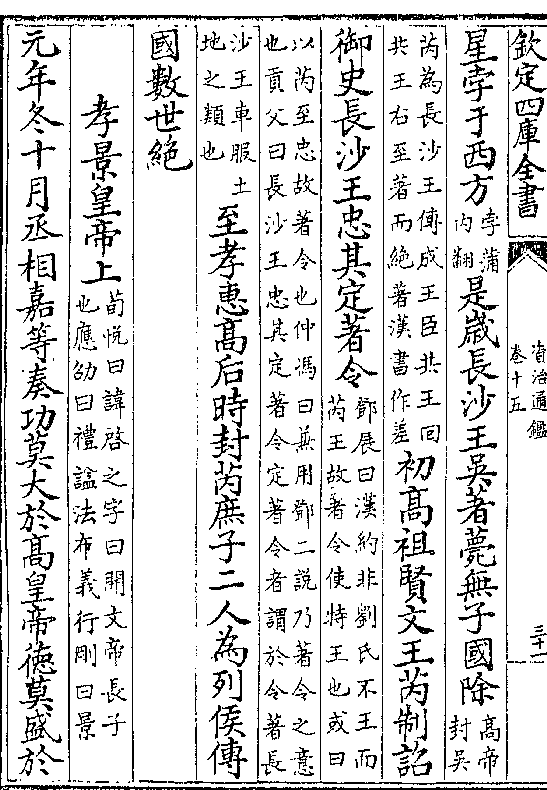 欽定四庫全書 資治通鑑 卷十五 三十一
星孛于西方 孛蒲内翻 是嵗長沙王吳著薨無子國除 髙帝封吳
芮為長沙王傳成王臣共王回共王右至著而絶著漢書作差 初髙祖賢文王芮制詔
御史長沙王忠其定著令 鄧展曰漢約非劉氏不王而芮王故著令使特王也或曰
以芮至忠故著令也仲馮曰兼用鄧二說乃著令之意也貢父曰長沙王忠其定著令定著令者謂於令著長
沙王車服土地之類也 至孝惠髙后時封芮庶子二人為列侯傳
國數世絶
孝景皇帝上 荀悅曰諱啓之字曰開文帝長子也應劭曰禮諡法布義行剛曰景
元年冬十月丞相嘉等奏功莫大於髙皇帝徳莫盛於